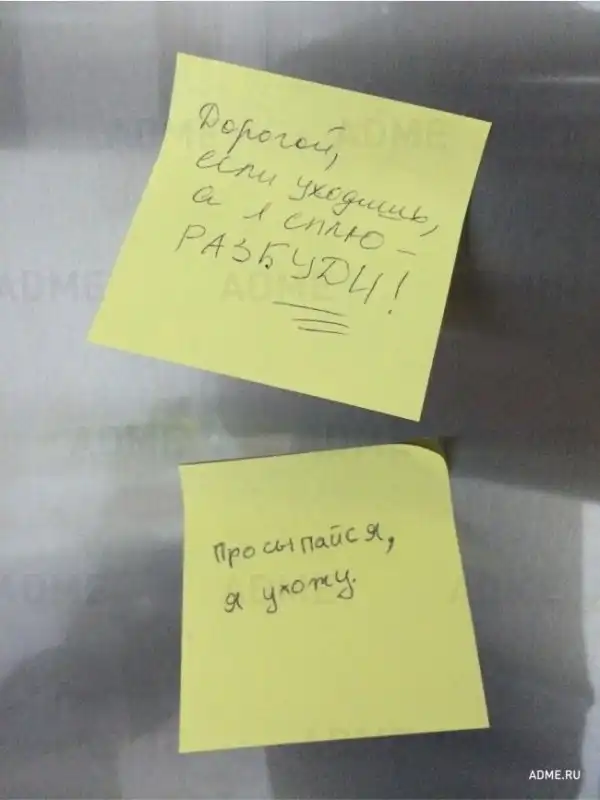 Дорогой,
если уходишь,
а я сплю –
РАЗБУДИ!
Просыпайся,
я ухожу.
ADME.RU